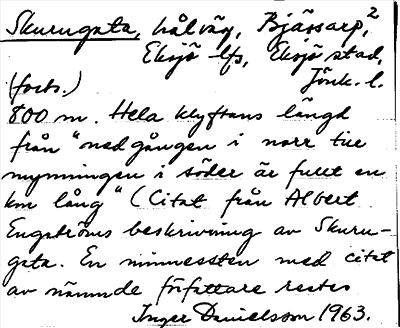 Skurugata, hålväg, Bjässarp,²
Eksjö lfs, Eksjö stad,
Jönk. l.
(forts.)
800 m. Hela klyftans längd
från "nedgången i norr till
mynningen i söder är fullt en
km lång" (Citat från Albert
Engströms beskrivning av Skuru-
gata. En minnessten med citat
av nämnde författare restes
Inger Danielsson 1963.